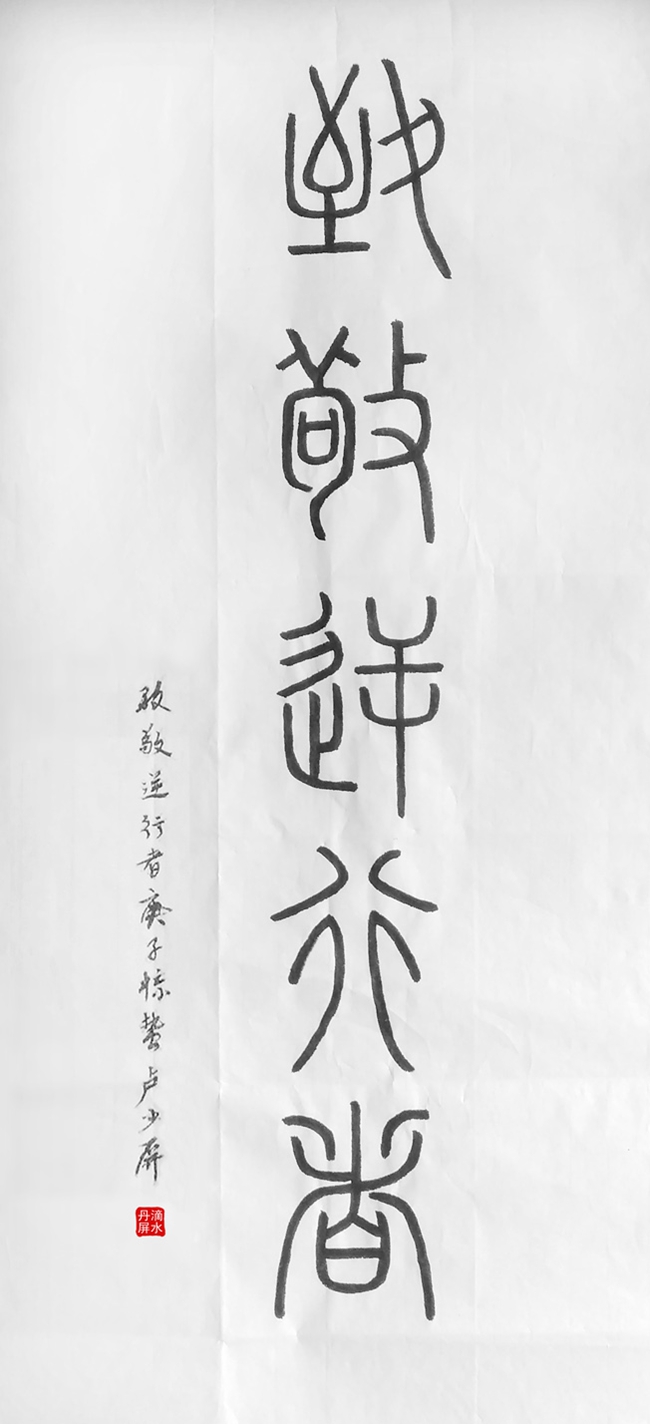 致敬逆行者
致敬逆行者庚子惊蛰卢少屏
滴水
丹屏